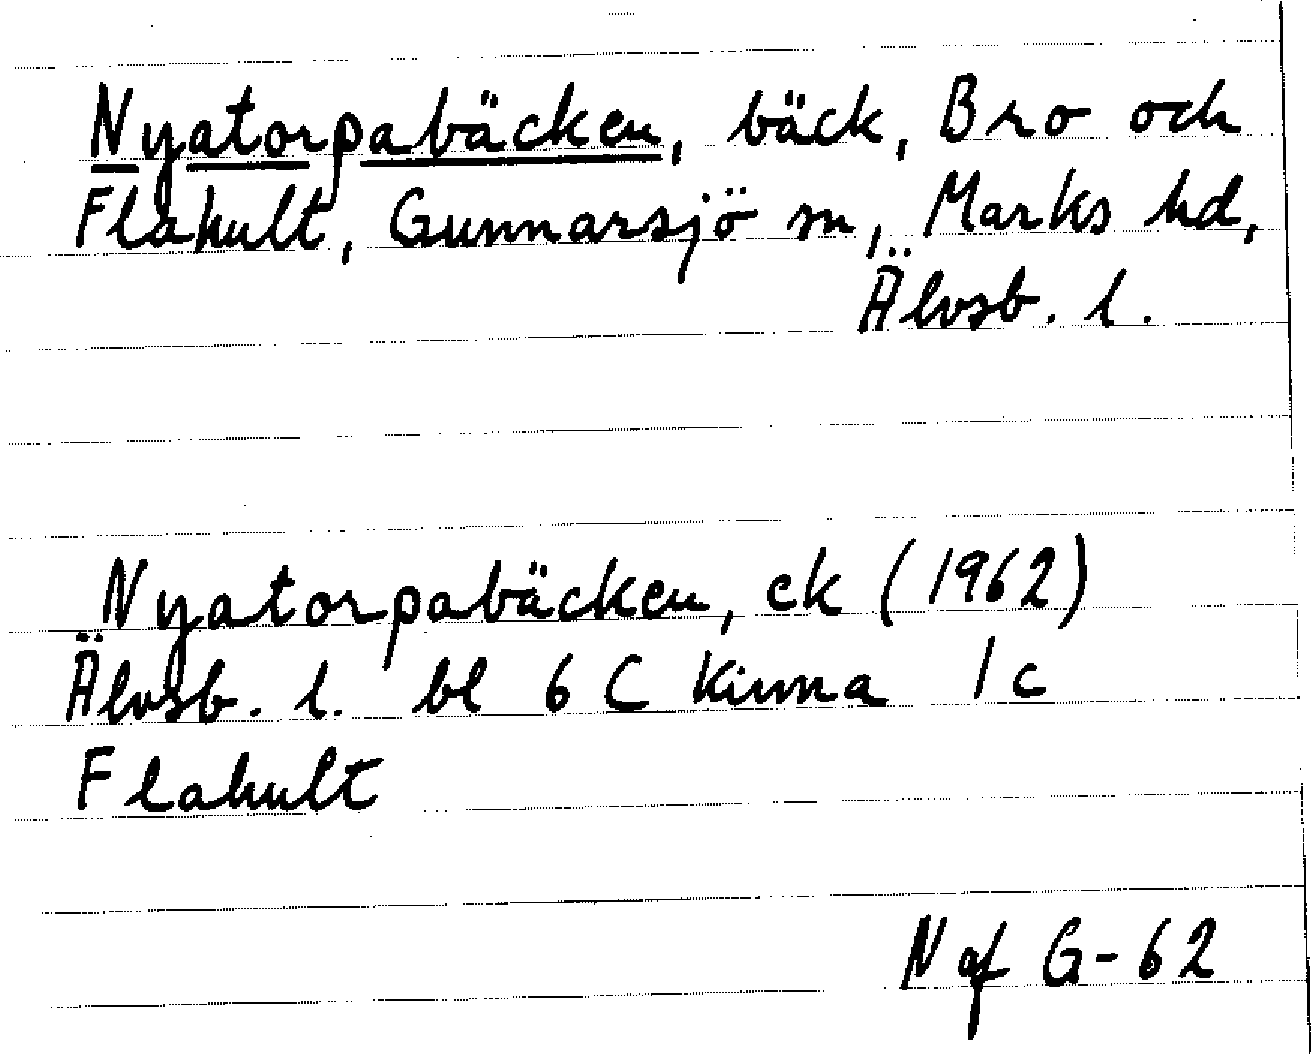 Nyatorpabäcken, bäck, Bro och
Flahult, Gunnarsjö sn, Marks hd,
Älvsb. l.
Nyatorpabäcken, ek (1962)
Älvsb. l. bl 6 C Kinna 1 c
Flahult
N af G-62